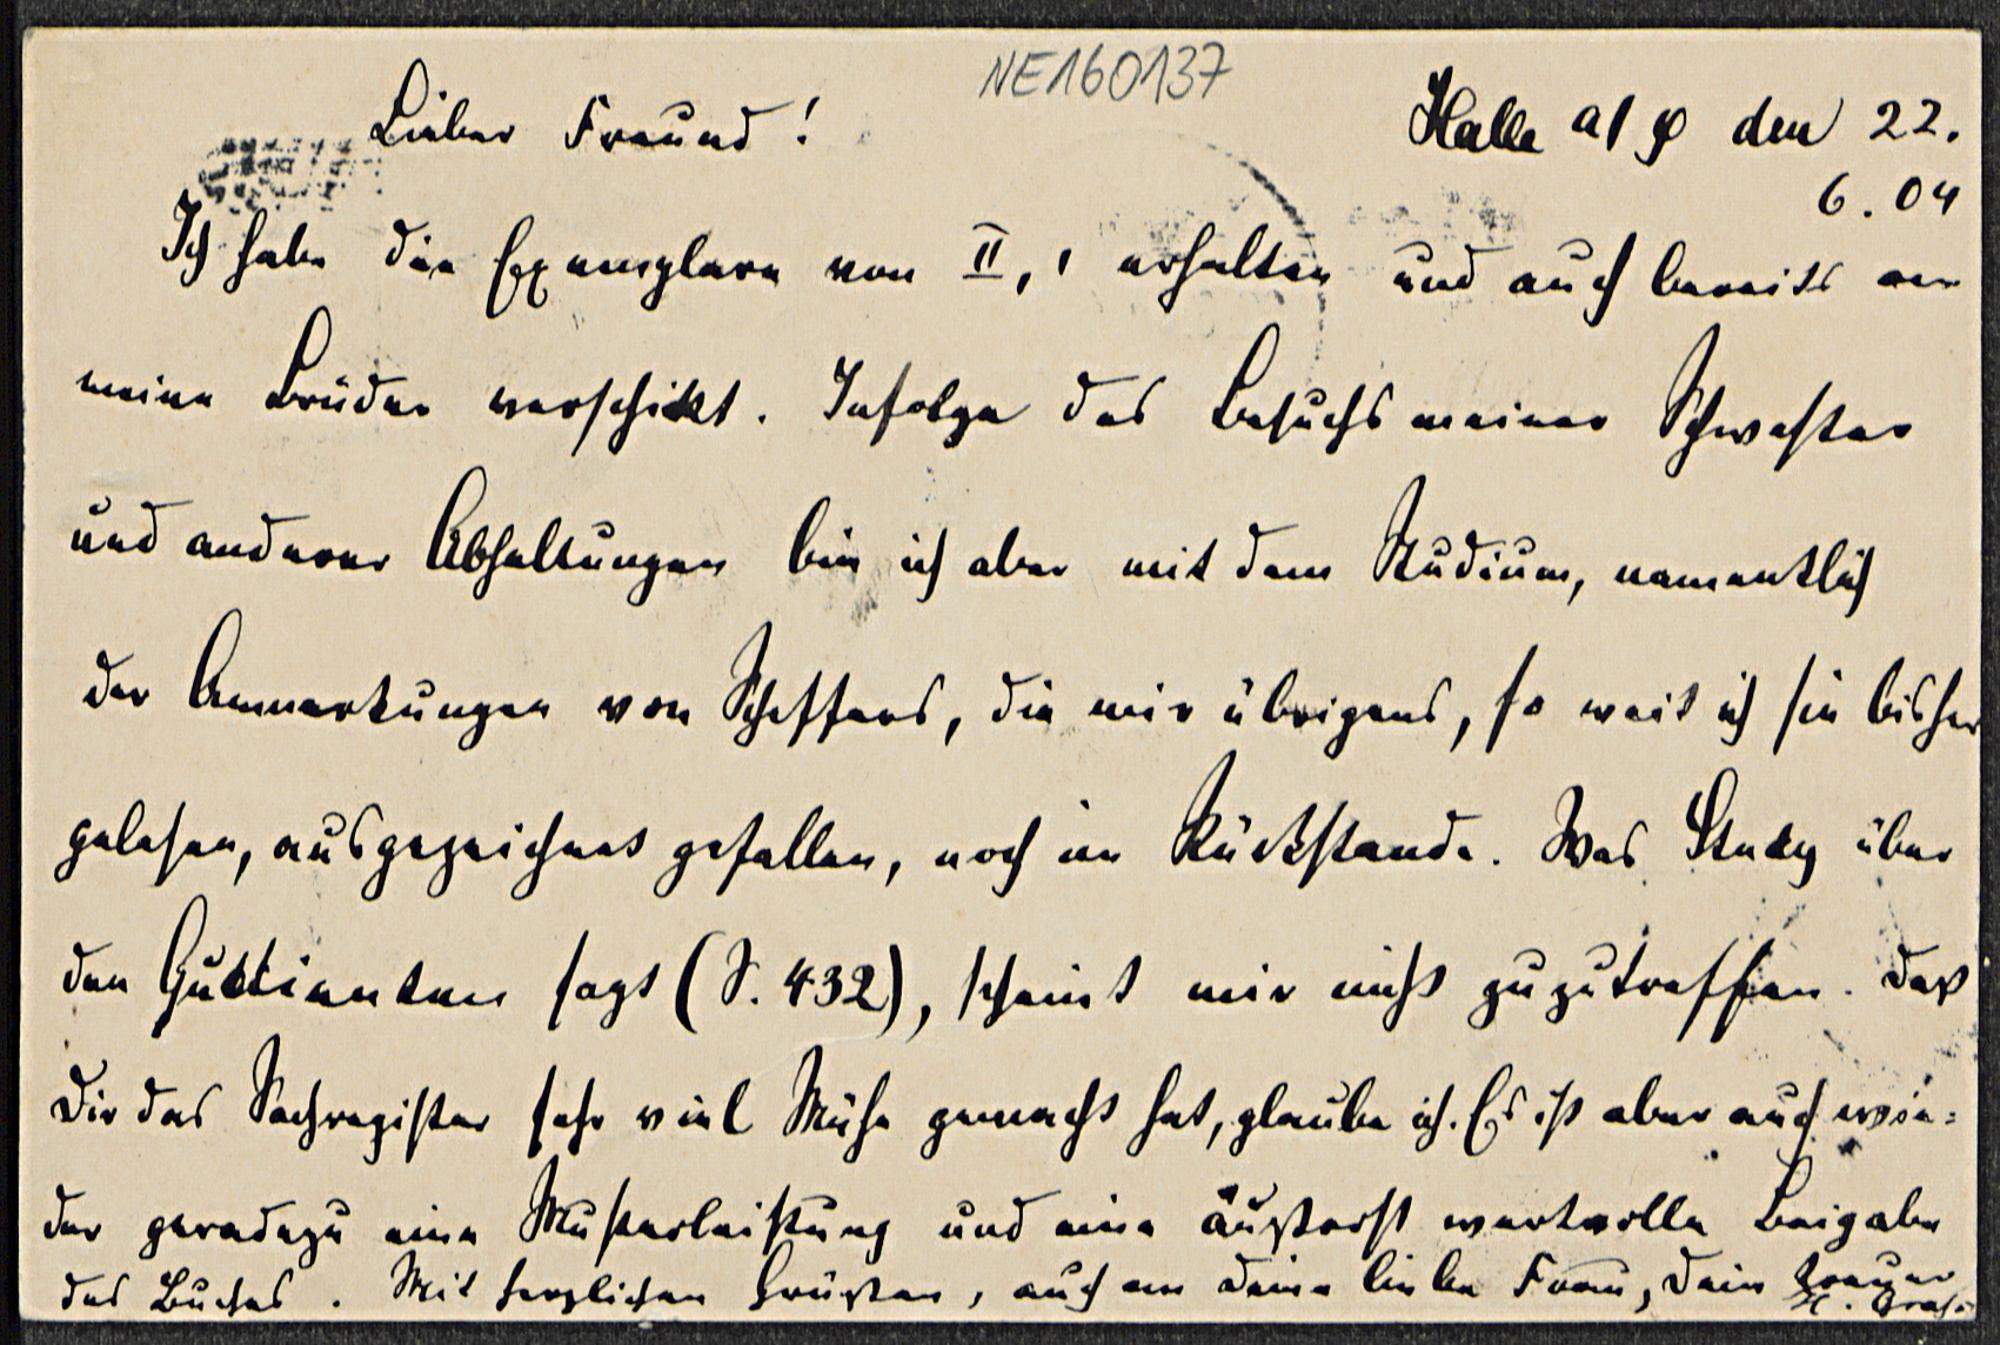 NE160137
Lieber Freund!
Halle a/S den 22.
6. 04
Ich habe die Exemplare von II, 1 erhalten und auch bereits an
meine Brüder verschikt. Infolge des Besuchs meiner Schwester
und anderer Abhaltungen bin ich aber mit dem Studium, namentlich
der Anmerkungen von Scheffers, die mir übrigens, so weit ich sie bisher
gelesen, ausgezeichnet gefallen, noch im Rückstande. Was Study über
den Quotienten sagt (S. 432), scheint mir nicht zuzutreffen. Daß
Dir das Sachregister sehr viel Mühe gemacht hat, glaube ich. Es ist aber auch wie=
der geradezu eine Musterleistung und eine äußerst wertvolle Beigabe
des Buches. Mit herzlichen Grüßen, auch an Deine liebe Frau, Dein treuer
H. Graß